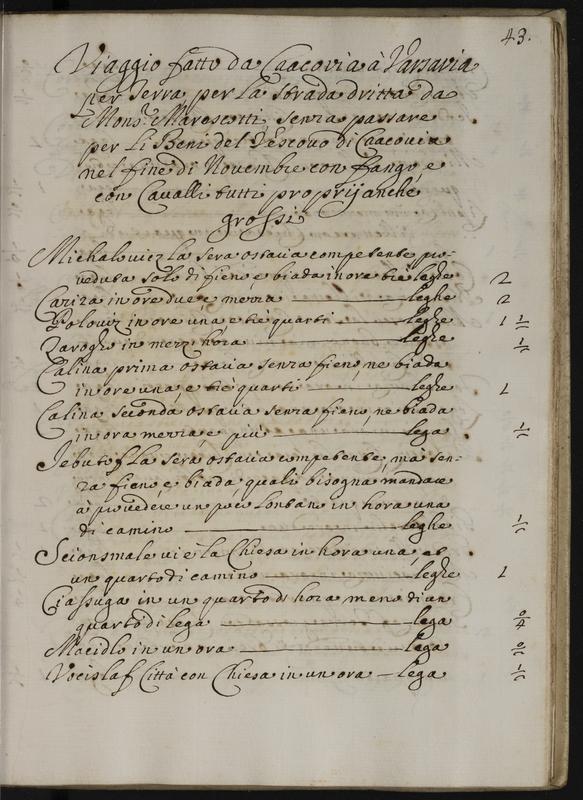 43.
Viaggio fatto da Cracovia à Varsavia
per Terra per la strada dritta da
Mons.r Marescotti senza passare
per li Beni del Vescovo di Cracovia
nel fine di Novembre con fango, e
con Cavalli tutti proprij anche
grossi
Michalovicz la sera ostaria competente pro-
veduta solo di fieno e biada in ore tre leghe 2
Cariza in ore due e mezza leghe 2
Poloviz in ore una, e tre quarti leghe 1 1/2
Zaroghe in mezz hora leghe 1/2
Calina prima ostaria senza fieno, ne biada
in ore una, e tre quarti leghe 1
Calina seconda ostaria senza fieno, ne biada
in ora mezza, e più lega 1/2
Jebutof la sera ostaria competente, mà sen-
za fieno, e biada, quali bisogna mandare
à provedere un poco lontano in hora una
di camino leghe 1/2
Scionsmale vi è la Chiesa in hora una, et
un quarto di camino leghe 1
Ciassuga in un quarto d' hora meno di un
quarto di lega lega 0/4
Macidlo in un ora lega 0/2
Vocislaf Città con Chiesa in un ora lega 1/2